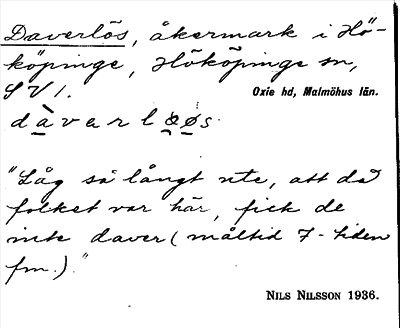 Daverlös, åkermark i Hö-
köpinge, Hököpinge sn,
SV/.
Oxie hd, Malmöhus län.
"Låg så långt ute, att då
folket var här, fick de
inte daver (måltid 7-tiden
fm.)."
NILS NILSSON 1936.